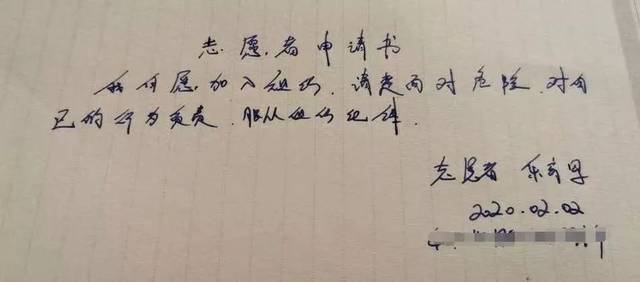 志愿者申请书
我自愿加入组织,请赴面对危险,对自
己的行为负责,服从组织纪律。
志愿者
2020.02.02